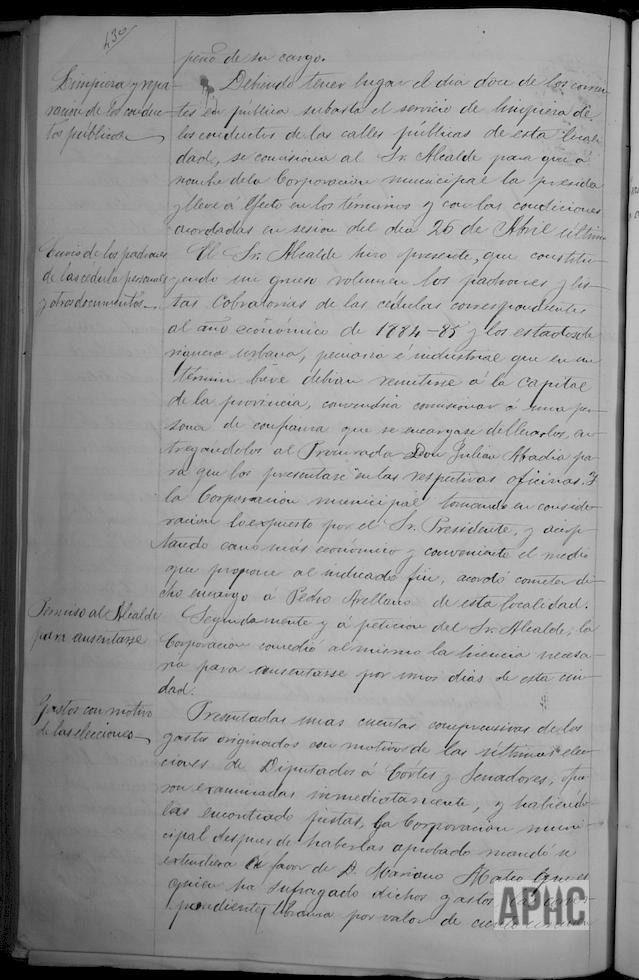 430
peño de su cargo.
Limpieza y repa-
ración de los conduc-
tos públicos.
Debiendo tener lugar el dia doce de los corrien-
tes en pública subasta el servicio de limpieza de
los conductos de las calles públicas de esta locali-
dad, se comisiona al Sr. Alcalde para que á
nombre de la Corporación municipal la presida
y lleve á efecto en los términos y con las condiciones
acordadas en sesion del dia 26 de Abril último
Envio de los padrones
de las cédulas personales
y otros documentos.
El Sr. Alcalde hizo presente, que constitu-
yendo un grueso volumen los padrones y lis-
tas cobratorias de las cédulas correspondientes
al año económico de 1884-85 y los estados de
riqueza urbana, pecuaria é industrial que en un
término breve debian remitirse á la capital
de la provincia, convendria comisionar á una per-
sona de confianza que se encargase de llevarlos, en-
tregándolos al Procurador Don Julian Abadia pa-
ra que los presentase en las respectivas oficinas. Y
la Corporación municipal tomando en conside-
racion lo expuesto por el Sr. Presidente, y acep-
tando como más económico y conveniente el medio
que propone al indicado fin, acordó cometer di-
cho encargo á Pedro Arellano de esta localidad.
Permiso al Alcalde
para ausentarse
Seguidamente y á petición del Sr. Alcalde, la
Corporación concedió al mismo la licencia necesa-
ria para ausentarse por unos dias de esta ciu-
dad.
Gastos con motivo
de las elecciones
Presentadas unas cuentas comprensivas de los
gastos originados con motivo de las últimas elec-
ciones de Diputados á Córtes y Senadores, fue-
ron examinadas inmediatamente, y habiéndo-
las encontrado justas, la Corporación muni-
cipal despues de haberlas aprobado mandó se
extendiera á favor de D. Mariano Mateo
quien ha sufragado dichos gastos la corres-
pondiente libranza por valor de ciento
APHC